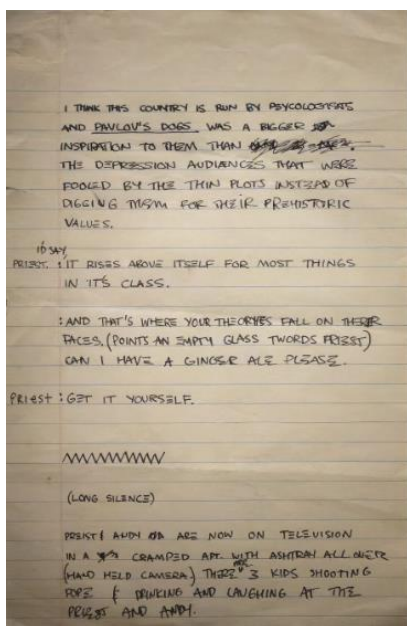 I THINK THIS COUNTRY IS RUN BY PSYCOLOGISTS
AND PAVLOV'S DOGS WAS A BIGGER
INSPIRATION TO THEM THAN
THE DEPRESSION AUDIANCES THAT WERE
FOOLED BY THE THIN PLOTS INSTEAD OF
DIGGING THEM FOR THEIR PREHISTORIC
VALUES.
I'D SAY
PRIEST : IT RISES ABOVE ITSELF FOR MOST THINGS
IN IT'S CLASS.
: AND THAT'S WHERE YOUR THEORYES FALL ON THEIR
FACES. (POINTS AN EMPTY GLASS TWORDS PRIEST)
CAN I HAVE A GINGER ALE PLEASE.
PRIEST : GET IT YOURSELF.
(LONG SILENCE)
PREIST & ANDY ARE NOW ON TELEVISION
IN A CRAMPED APT. WITH ASHTRAY ALL OVER
(HAND HELD CAMERA) THERE 3 KIDS SHOOTING
DOPE & DRINKING AND LAUGHING AT THE
PRIEST AND ANDY.